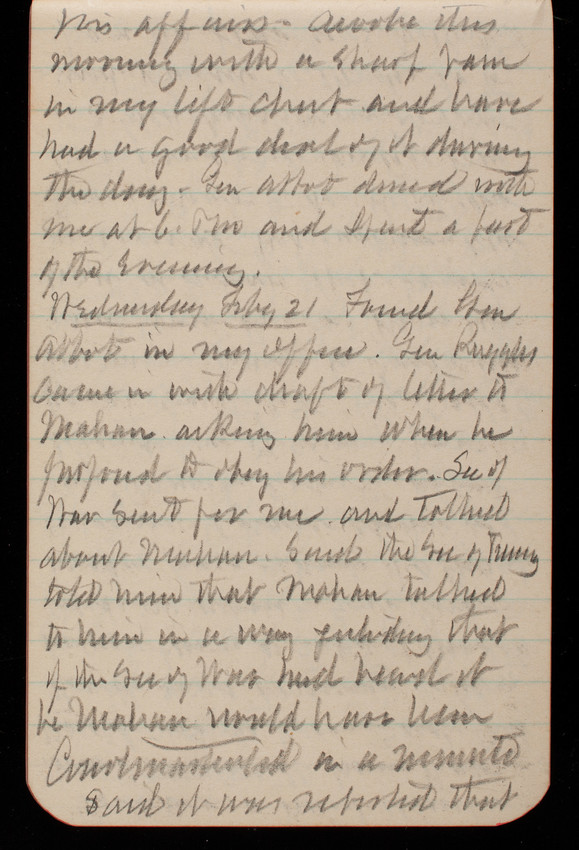 his affairs - Awoke this
morning with a sharp pain
in my left chest and have
had a good deal of it during
the day - Gen Abbot dined with
me at 6. PM and spent a part
of the Evening.
Wednesday Feby 21 Found Gen
Abbot in my office. Gen Ruggles
came in with draft of letter to
Mahan asking him when he
proposed to obey his order. Sec of
War sent for me and talked
about Mahan. Said the Sec of Treasy
told him that Mahan talked
to him in a way that
if the Sec of War had heard it
he Mahan would have been
Courtmartialed in a minute
Said it was reported that